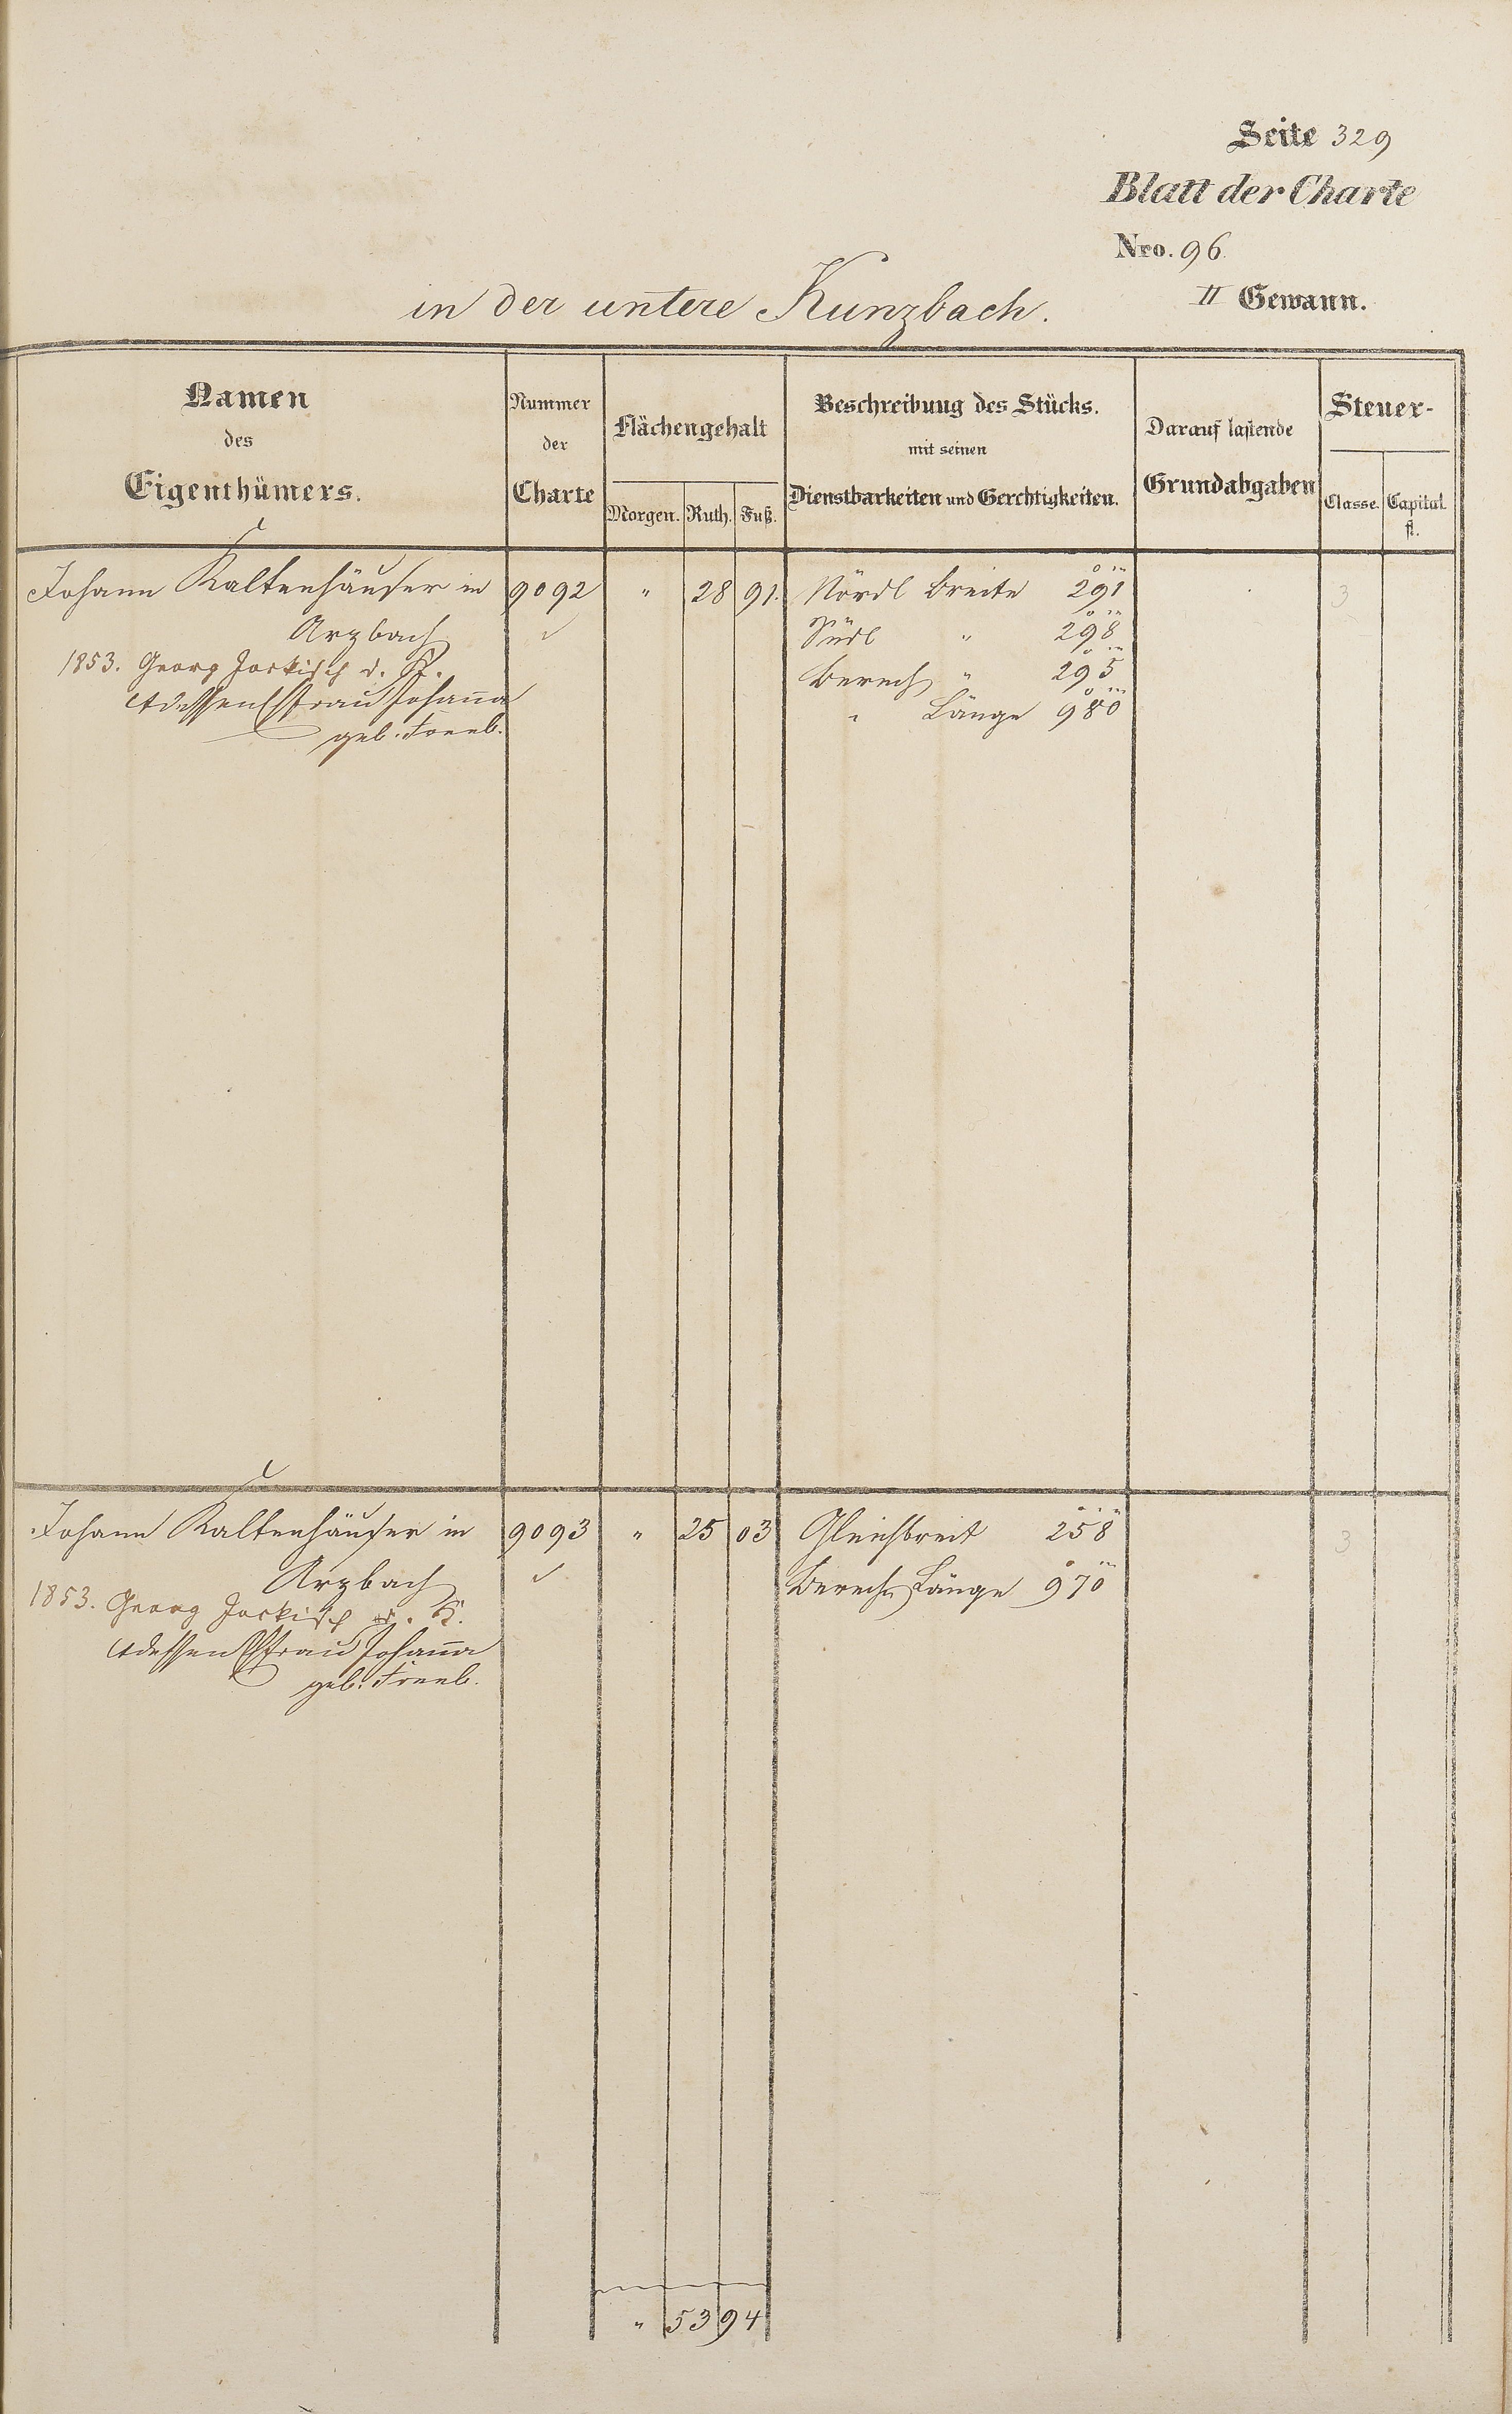 Seite 329
Blatt der Charte
Nro. 96.
II Gewann.
in der untere Kunzbach.
Namen des Eigenthümers.
Nummer der Charte
Flächengehalt
Morgen. Ruth. Fuß.
Beschreibung des Stücks. mit seinen Dienstbarkeiten und Gerechtigkeiten.
Darauf lastende Grundabgaben
Steuer-
Classe. Capital fl.
Johann Kaltenhäuser in 9092 " 28 91. Nördl Breite 291 3
Arzbach Südl " 298
1853. Georg Jackisch d. K. Berech " 295
dessen Efrau Johanna " Länge 980
geb.
Johann Kaltenhäuser in 9093 " 25 03 Gleichbreit 258 3
Arzbach Berech Länge 970
1853. Georg Jackisch d. K.
dessen Efrau Johanna
geb.
" 53 94